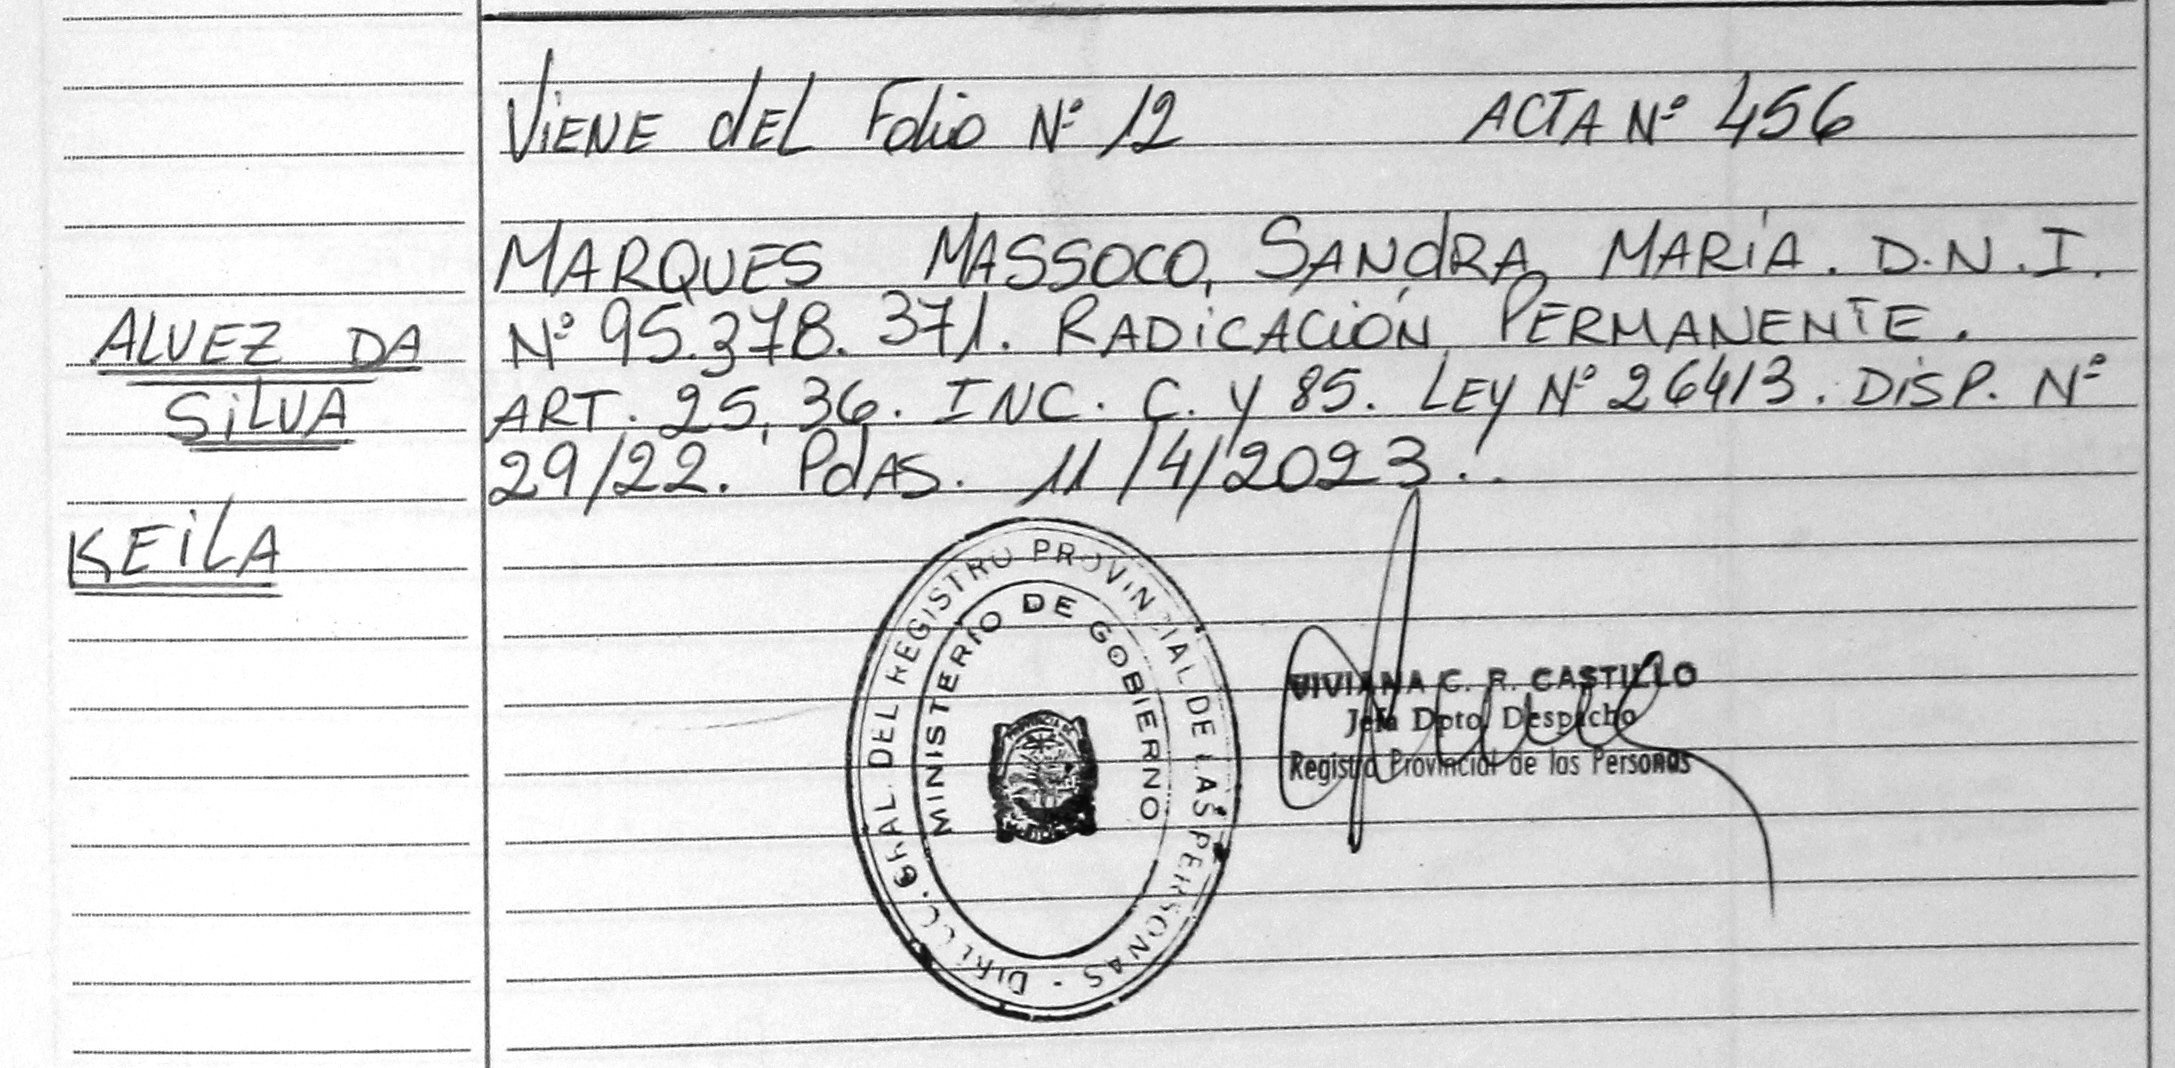 VIENE dEL Folio Nº 12 ACTA Nº 456
MARQUES MASSOCO, SANdRA MARÍA. D.N.I.
Nº 95.378.371. RADICACIÓN PERMANENTE.
ART. 25, 36. INC. C. Y 85. LEY Nº 26413. DISP. Nº
29/22. PdAS. 11/4/2023.
ALVEZ DA
SILVA
KEILA
DIRECC. GRAL. DEL REGISTRO PROVINCIAL DE LAS PERSONAS
MINISTERIO DE GOBIERNO
VIVIANA C. R. CASTILLO
Jefa Dpto. Despacho
Registro Provincial de las Personas